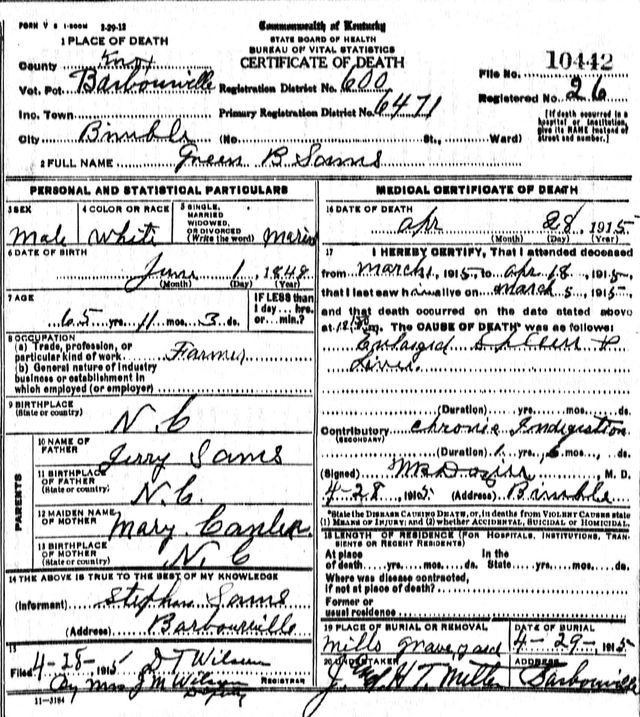 FORM V S 1-500M 3-29-12
Commonwealth of Kentucky
STATE BOARD OF HEALTH
BUREAU OF VITAL STATISTICS
CERTIFICATE OF DEATH
1 PLACE OF DEATH
County Knox
Vot. Pct. Barbourville Registration District No. 600
File No. 10442
Inc. Town Primary Registration District No. 6471
Registered No. 26
City (No. St., Ward)
[If death occurred in a
hospital or institution,
give its NAME instead of
street and number.]
2 FULL NAME Green B Sams
PERSONAL AND STATISTICAL PARTICULARS
3 SEX
Male
4 COLOR OR RACE
White
5 SINGLE,
MARRIED
WIDOWED,
OR DIVORCED
(Write the word) Married
6 DATE OF BIRTH
June 1 1848
(Month) (Day) (Year)
7 AGE
65 yrs. 11 mos. 3 ds.
IF LESS than
1 day... hrs.
or... min.?
8 OCCUPATION
(a) Trade, profession, or
particular kind of work Farmer
(b) General nature of industry
business or establishment in
which employed (or employer)
9 BIRTHPLACE
(State or country) N.C
PARENTS
10 NAME OF
FATHER Jerry Sams
11 BIRTHPLACE
OF FATHER
(State or country) N.C.
12 MAIDEN NAME
OF MOTHER Mary
13 BIRTHPLACE
OF MOTHER
(State or country) N.C
14 THE ABOVE IS TRUE TO THE BEST OF MY KNOWLEDGE
(Informant) Stephen Sams
(Address) Barbourville
15
Filed 4-28-, 1915 D T Wilson
By Mrs J M Wilson REGISTRAR
Deputy
11-3184
MEDICAL CERTIFICATE OF DEATH
16 DATE OF DEATH
Apr 28, 1915
(Month) (Day) (Year)
17 I HEREBY CERTIFY, That I attended deceased
from March 1, 1915, to Apr 18, 1915,
that I last saw him alive on March 5, 1915,
and that death occurred on the date stated above
at m. The CAUSE OF DEATH* was as follows:
Enlarged Spleen &
Liver
(Duration) yrs. mos. ds.
Contributory Chronic Indigestion
(SECONDARY)
(Duration) 1 yrs. 6 mos. ds.
(Signed) M. D.
4-28, 1915 (Address)
*State the DISEASE CAUSING DEATH, or, in deaths from VIOLENT CAUSES state
(1) MEANS OF INJURY; and (2) whether ACCIDENTAL, SUICIDAL or HOMICIDAL.
18 LENGTH OF RESIDENCE (FOR HOSPITALS, INSTITUTIONS, TRAN-
SIENTS OR RECENT RESIDENTS)
At place In the
of death yrs. mos. ds. State yrs. mos. ds.
Where was disease contracted,
if not at place of death?
Former or
usual residence
19 PLACE OF BURIAL OR REMOVAL
Mills Grave yard
DATE OF BURIAL
4-29-, 1915
20 UNDERTAKER
H T Miller
ADDRESS
Barbourville